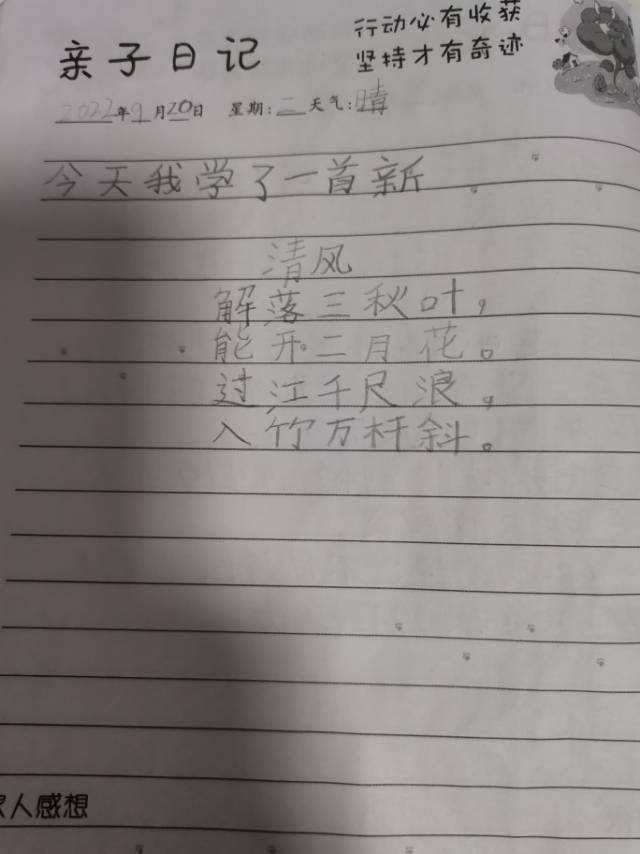 亲子日记
行动必有收获
坚持才有奇迹
2022年9月20日 星期:二 天气:晴
今天我学了一首新
清风
解落三秋叶,
能开二月花。
过江千尺浪,
入竹万杆斜。
人感想